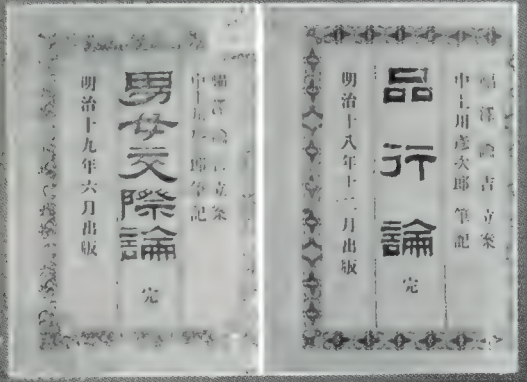 福澤諭吉立案
中上川彦次郎筆記
品行論 完
明治十八年十二月出版
福澤諭吉立案
中上川彦次郎筆記
男女交際論 完
明治十九年六月出版